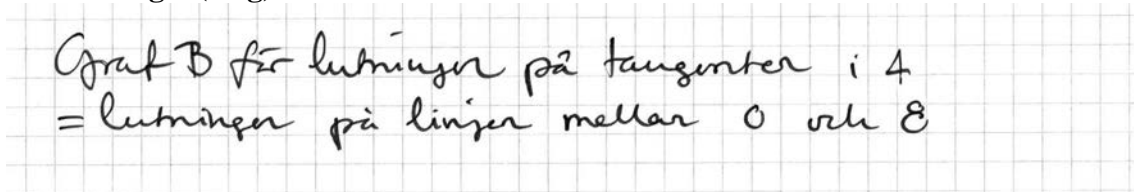 Graf B för lutningen på tangenten i 4
= lutningen på linjen mellan 0 och 8